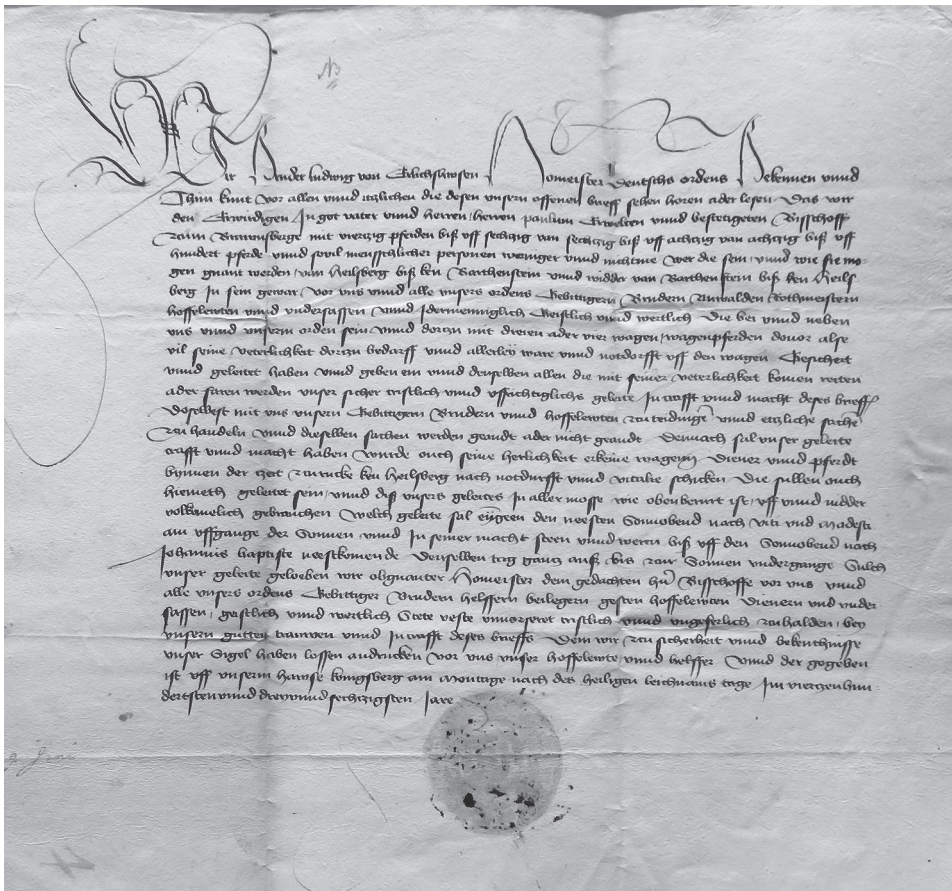 Wir Bruder ludwig von Erlichshwsen Homeister Deutschs ordens Bekennen vnnd
Thun kunt vor allen vnnd itzlichen die desen vnsern offenen brieff sehen horen ader lesen Das wir
den Erwirdigen In got vater vnnd herren herren paulum Erwelten vnnd bestetigeten Bisschoff
czum Brawnsberge mit viertzig pferden biß vff sechtzig van sechtzig biß vff achtzig van achtzig biß vff
hundert pferde vnnd sovil menschlicher personen weniger vnnd nichtme wer die sein vnnd wie sie mo-
gen gnant werden van Heilsberg biß ken Barthenstein vnnd widder van Barthenstein biß ken Heils
berg In sein gewar vor vns vnnd alle vnsers ordens Gebittigern Brudern Anwalden Rothmeistern
hoffelewten vnnd vndersassen vnnd Idermenniglich Geistlich vnnd wertlich Die bei vnnd neben
vns vnnd vnserm orden sein vnnd dorczu mit dreien ader vier wagen wagenpferden dovor alse
vil seine veterlichkeit dorczu bedarff vnnd allerley ware vnnd notdorfft vff den wagen Gesichert
vnnd geleitet haben vnnd geben em vnnd denselben allen die mit seiner veterlichkeit komen reiten
ader faren werden vnser sicher cristlich vnnd vffrichtiglichs geleite In crafft vnnd macht deses brieffs
Doselbest mit vns vnsern Gebittigern Brudern vnnd hoffelewten czu teidingen vnnd etzliche sachen
czu handeln vnnd dieselben sachen werden geandt ader nicht geandt Dennach sal vnser geleite
crafft vnnd macht haben wurde ouch seine herlichkeit erkeine wagenn Diener vnnd pferdt
bynnen der czeit czurucke ken Heilsberg nach notdurfft vnnd vitalie schicken Die sullen ouch
hiemeth geleitet sein vnnd diß vnsers geleites In aller mosse wie obenberurt ist vff vnnd nidder
volkomelich gebrauchen Welch geleite sal eygeen den neesten Sonnobend nach viti vnd Modesti
am vffgange der Sonnen vnnd In seiner macht steen vnnd weren biß vff den Sonnobend nach
Johannis baptiste neestkomende Denselben tag gantz auß bis czur Sonnen vndergange Sulch
vnser geleite geloeben wir obgnanter Homeister dem gedachten hern Bisschoffe vor vns vnnd
alle vnsers ordens Gebittiger Brudern helffern beilegern gesten hoffelewten Dienern vnd vnder
sassen geistlich vnnd wertlich Stete veste vnvorseret cristlich vnnd vngeferlich czu halden bey
vnsern gutten trawwen vnnd In crafft deses brieffs Dem wir czu sicherheit vnnd bekentnisse
vnser Sigel haben lossen andrucken vor vns vnser hoffelewte vnnd helffer Vnnd der gegeben
ist vff vnserm hawse konigsberg am Montage nach des heiligen leichnams tage Im viertzenhun
dertsten vnnd drewundsechtzigsten Jare